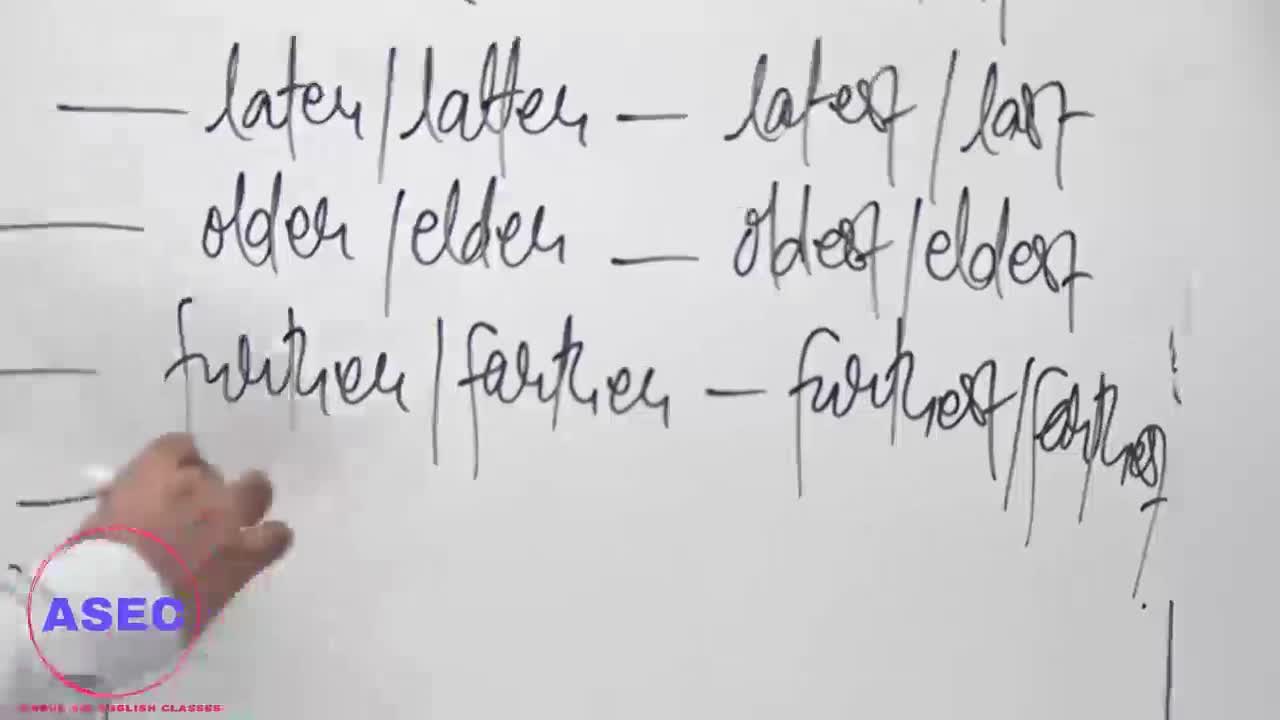 — later/latter — latest/last
— older/elder — oldest/eldest
— further/farther — furthest/farthest
ASEC
ENGLISH CLASSES